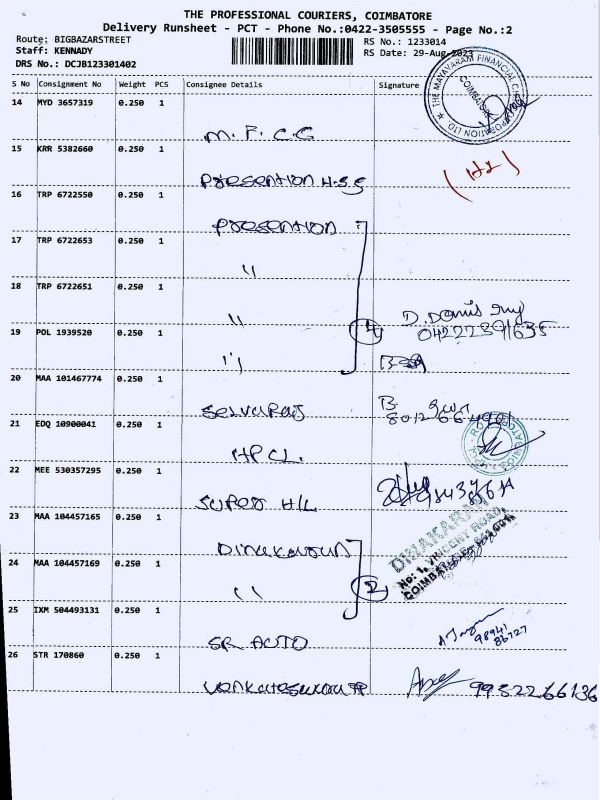 THE PROFESSIONAL COURIERS, COIMBATORE
Delivery Runsheet - PCT - Phone No.:0422-3505555 - Page No.:2
Route: BIGBAZARSTREET
RS No.: 1233014
Staff: KENNADY
RS Date: 29-Aug-2023
DRS No.: DCJB123301402
S No Consignment No Weight PCS Consignee Details Signature
THE MAYAVARAM FINANCIAL CORPORATION LTD
COIMBATORE
14 MYD 3657319 0.250 1
M.F.C.G
15 KRR 5382660 0.250 1
(H2)
Presention H.S.S
16 TRP 6722550 0.250 1
Presention
17 TRP 6722653 0.250 1
"
18 TRP 6722651 0.250 1
"
4
04222391635
19 POL 1939520 0.250 1
"
20 MAA 101467774 0.250 1
Selvaraj
B
21 EDQ 10900041 0.250 1
HPCL.
22 MEE 530357295 0.250 1
Super H/L
23 MAA 104457165 0.250 1
Dinakaran
DINAKARAN
No: 1, VINCENT ROAD,
24 MAA 104457169 0.250 1
"
2
25 IXM 504493131 0.250 1
SR AUTO
98941
86727
26 STR 170860 0.250 1
9952266136